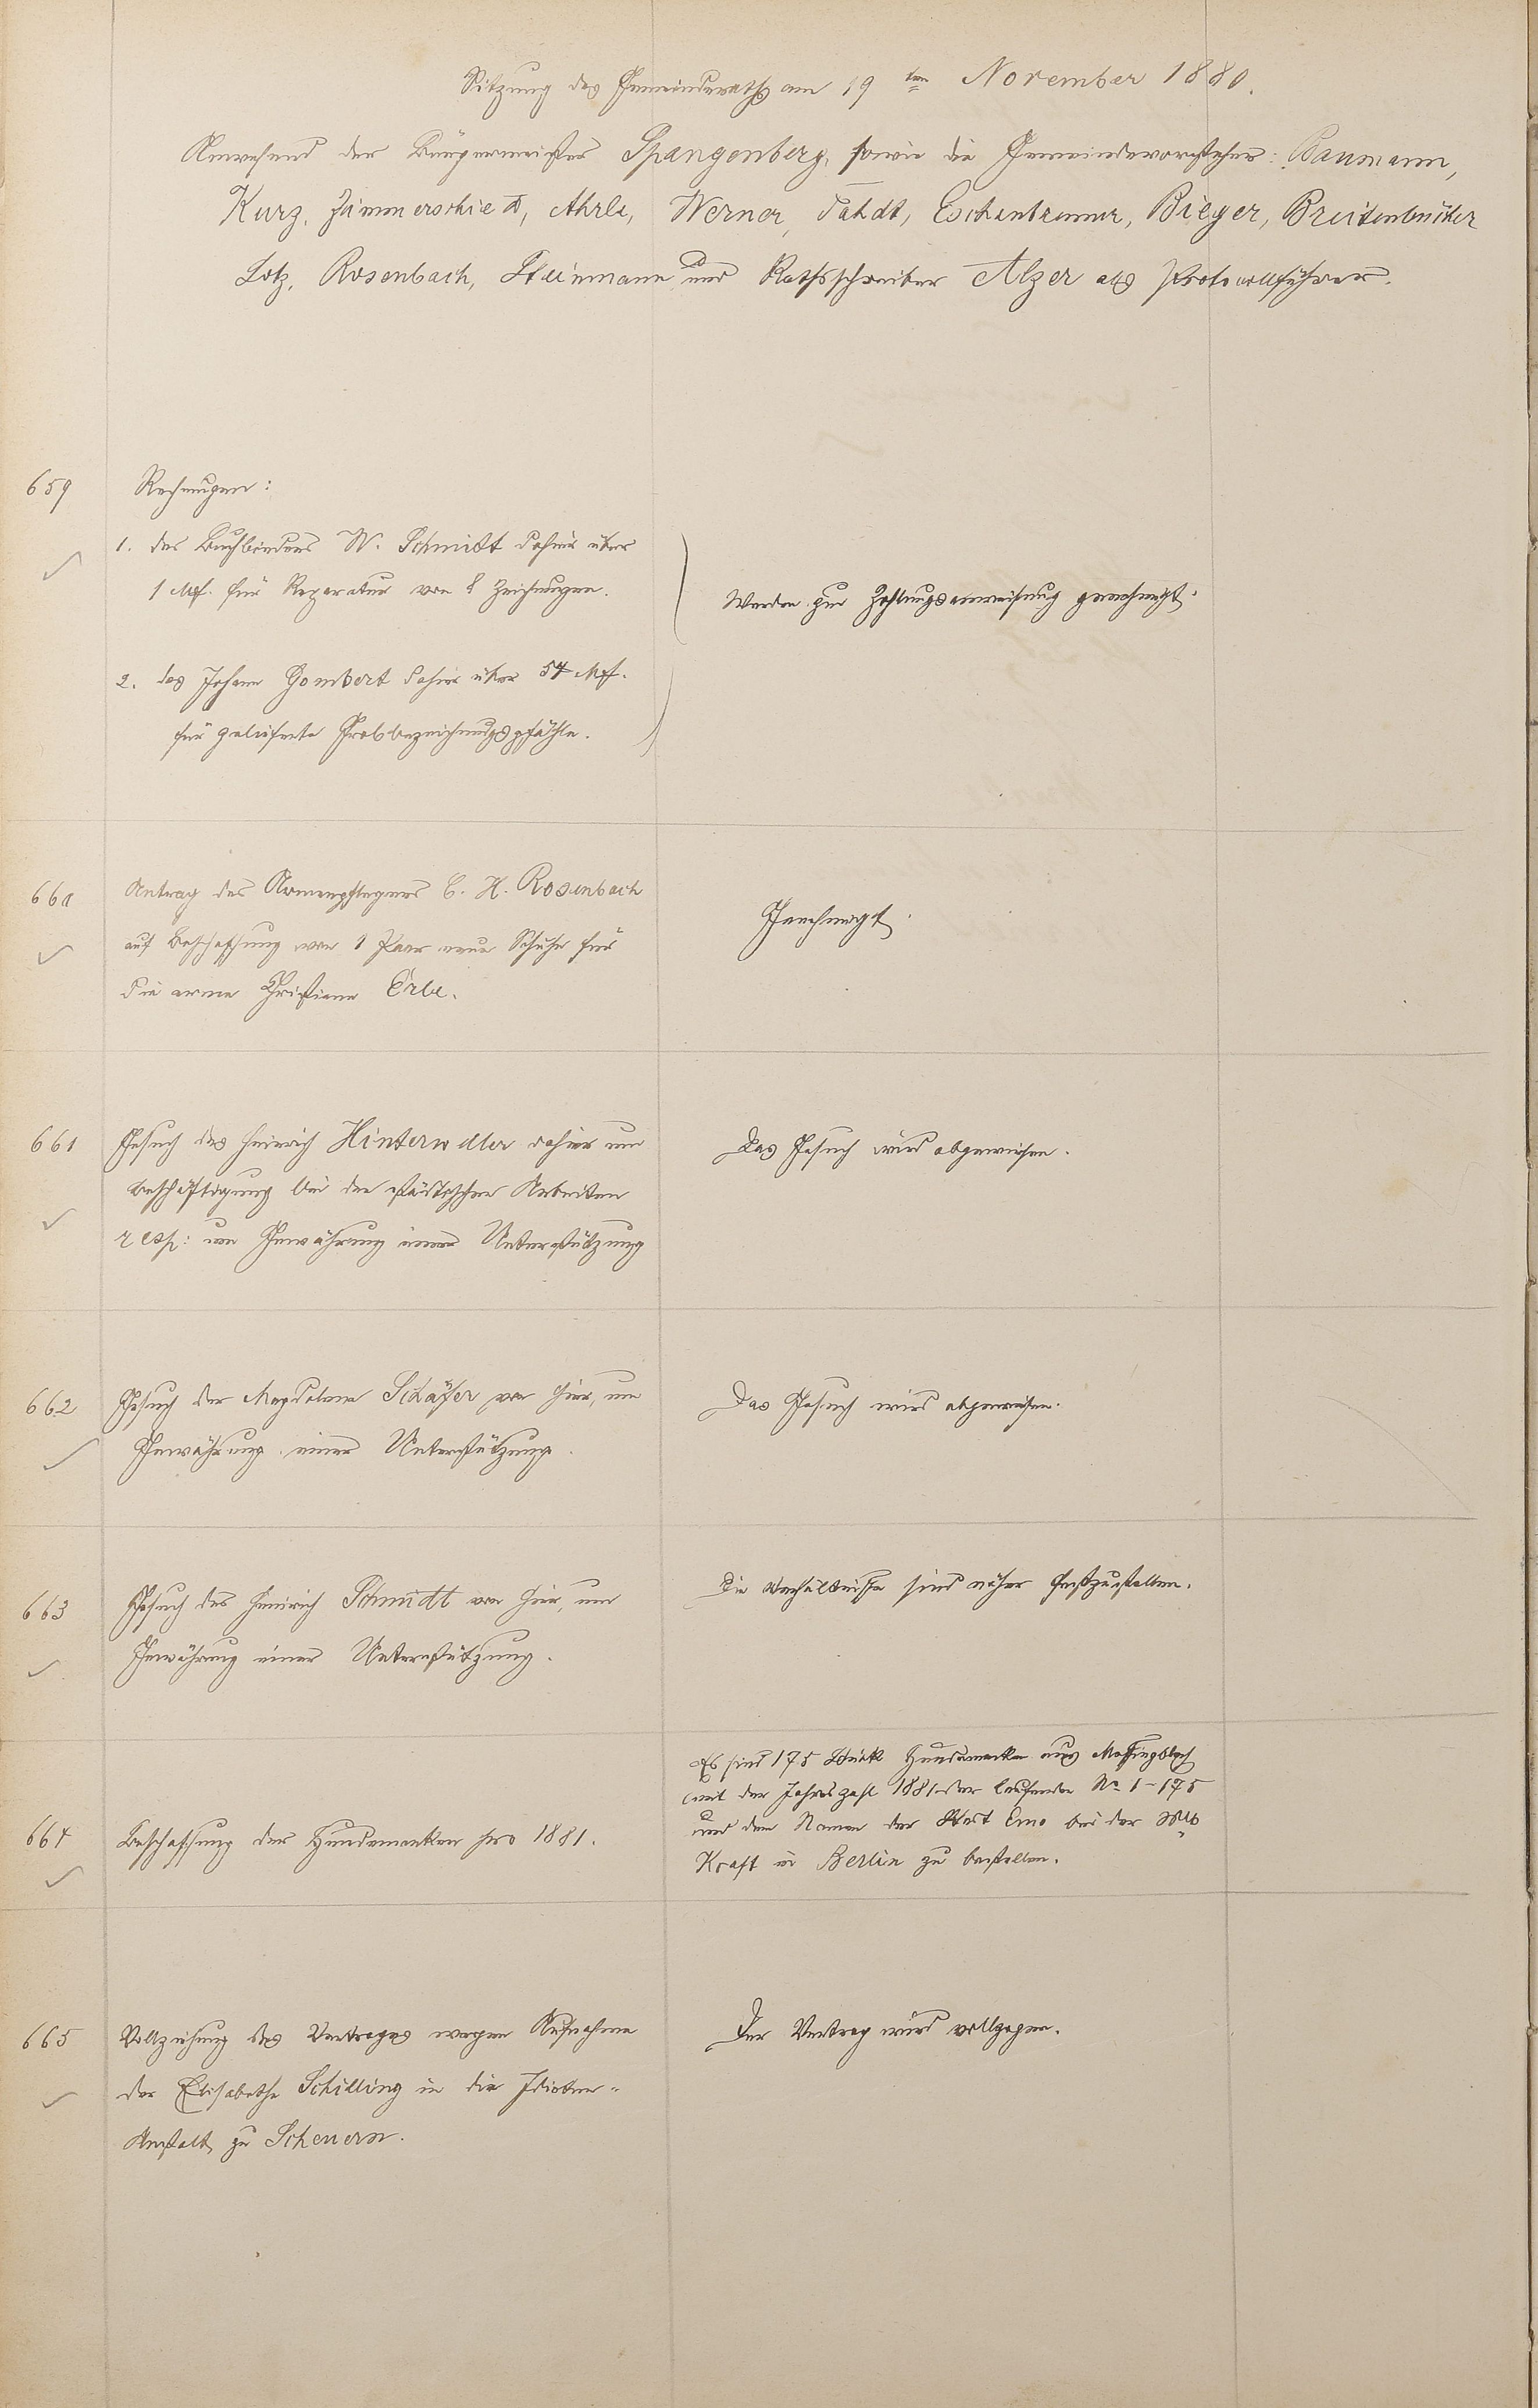 Sitzung des Gemeinderaths am 19ten November 1880.
Anwesend der Bürgermeister Spangenberg, sowie die Gemeindevorsteher: Baumann,
Kurz, Zimmerschied, Ahrle, Werner, Fahdt, Eschenbrenner, Bieger, Breitenbücher
Lotz, Rosenbach, Steinmann und Rathsschreiber Alzer als Protocollführer.
659
Rechnungen:
1. des Buchbinders W. Schmidt dahier über
1 Mk. für Reparatur von 8 Zeichnungen.
2. des Johann Gombert dahier über 54 Mk.
für gelieferte Grabbezeichnungspfähle.
Werden zur Zahlungsanweisung genehmigt.
660
Antrag des Armenpflegers C. H. Rosenbach
auf Beschaffung von 1 Paar neue Schuhe für
die arme Christiane Erle.
Genehmigt.
661
Gesuch des Heinrich Hinterwäller dahier um
Beschäftigung bei den städtischen Arbeiten
resp: um Gewährung einer Unterstützung
Das Gesuch wird abgewiesen.
662
Gesuch der Magdalena Schäfer von hier, um
Gewährung einer Unterstützung.
Das Gesuch wird abgewiesen.
663
Gesuch des Heinrich Schmidt von hier, um
Gewährung einer Unterstützung.
Die Verhältnisse sind näher festzustellen.
664
Beschaffung der Hundemarken pro 1881.
Es sind 175 Stück Hundemarken aus Messingblech
mit der Jahreszahl 1881 der laufenden No 1-175
und dem Namen der Stadt Ems bei der
Kraft in Berlin zu bestellen.
665
Vollziehung des Vertrages wegen Aufnahme
der Elisabethe Schilling in die Idioten-
Anstalt zu Scheuern.
Der Vertrag wird vollzogen.